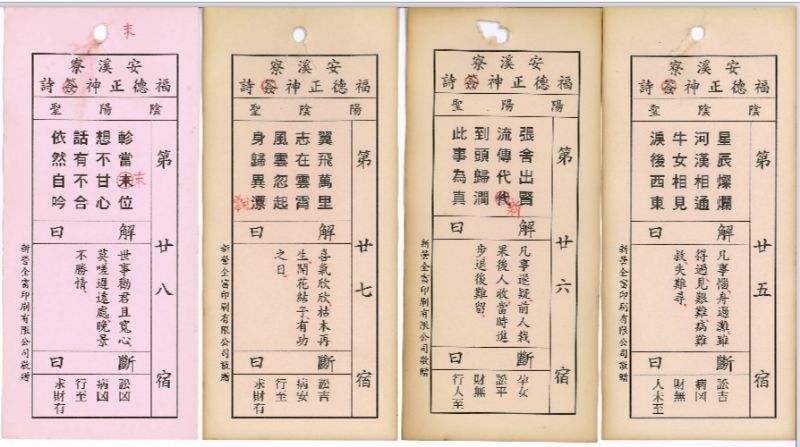 安溪寮
福德正神簽詩
陰陽聖
第廿五宿
星辰燦爛
河漢相通
牛女相見
淚後西東
解曰
凡事惱舟過灘難
得過見艱難病難
救失難尋
斷曰
訟吉
病凶
財無
人未至
新營全富印刷有限公司敬贈
安溪寮
福德正神簽詩
陽陽聖
第廿六宿
張舍出賢
流傳代代
到頭歸澗
此事為真
解曰
凡事遲疑前人栽
果後人收當時進
步退後難留
斷曰
孕女
訟平
財無
行人至
新營全富印刷有限公司敬贈
安溪寮
福德正神簽詩
陽陰聖
第廿七宿
翼飛萬里
志在雲霄
風雲忽起
身歸異漂
解曰
喜氣欣欣枯木再
生開花結子有功
之日
斷曰
訟吉
病安
行至
求財有
新營全富印刷有限公司敬贈
末
安溪寮
福德正神簽詩
陰陽聖
第廿八宿
軫當末位
末
想不甘心
話有不合
依然自吟
解曰
世事勸君且寬心
莫嗟遲遠處晚景
不勝情
斷曰
訟凶
病凶
行至
求財有
新營全富印刷有限公司敬贈